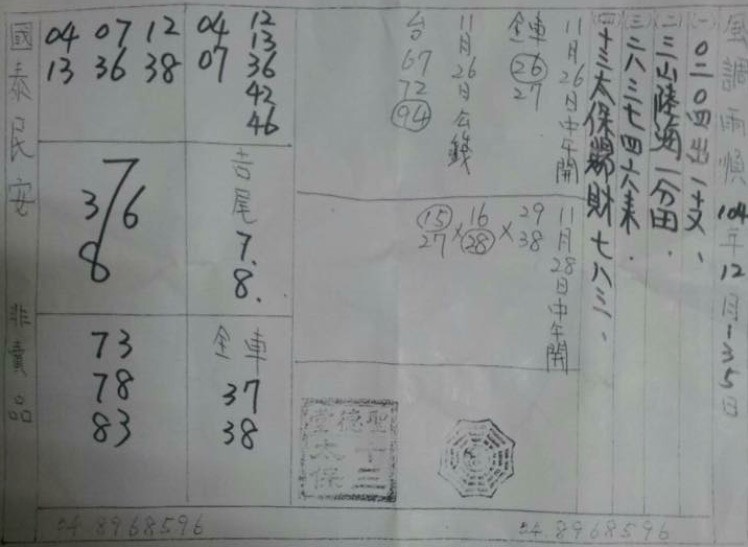 風調雨順 104年12月1.3.5日
(一) 0二0四出一支、
(二) 三山陸海一分田.
(三) 三六三七四六來.
(四) 十三太保賜財七八三、
11月26日中午開
全車
26
27
11月26日公錢
台
67
72
94
11月28日中午開
29 38 × 16 28 × 15 27
04 12
07 13
36
42
46
04 07 12
13 36 38
吉尾
7.
8.
7
3/6
8
全車
37
38
73
78
83
國泰民安 非賣品
聖德堂
十三太保
04 8968596
04 8968596